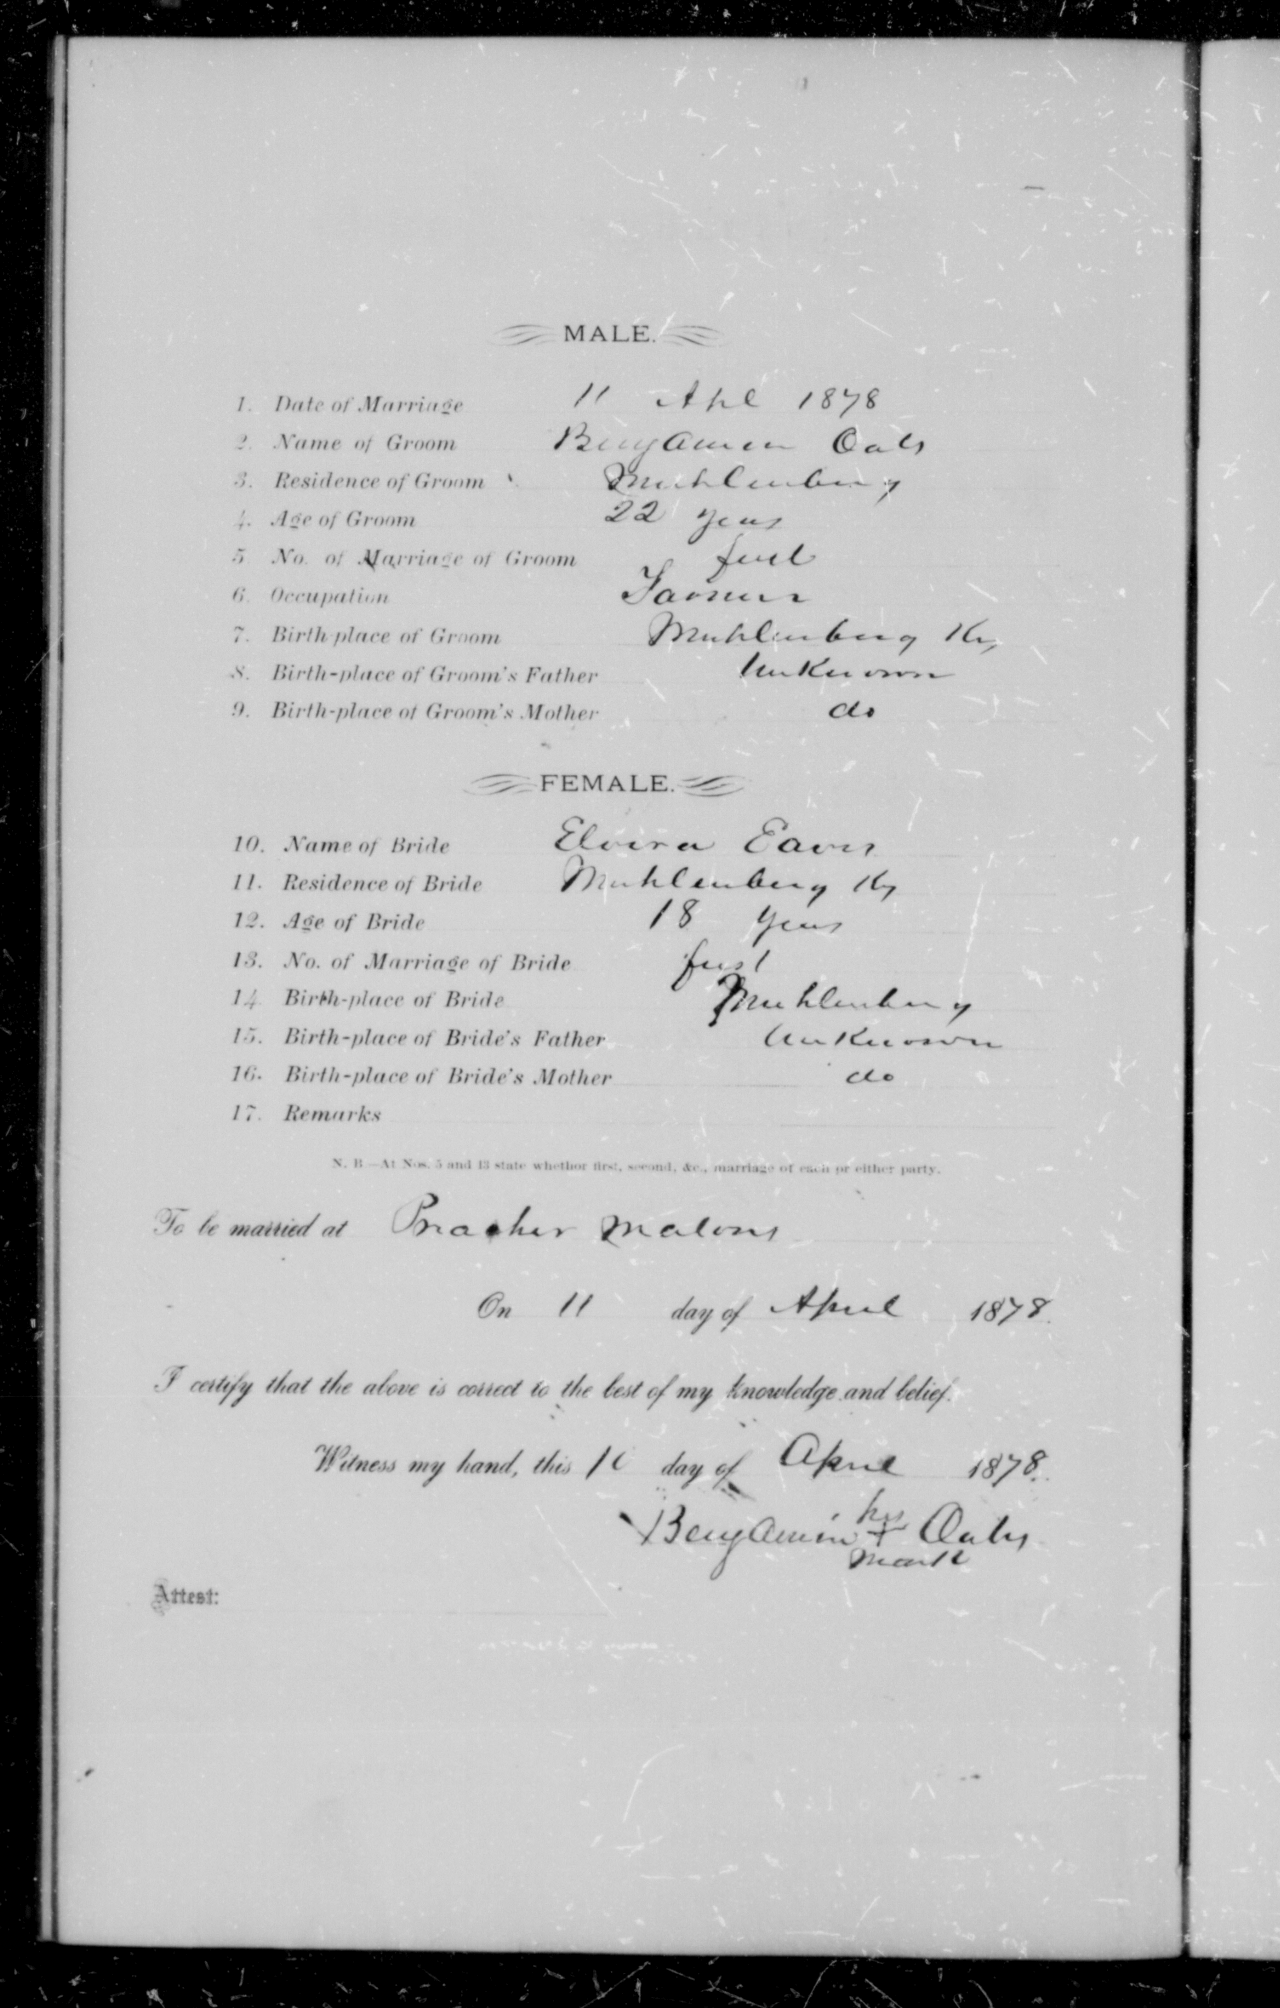 MALE.
1. Date of Marriage 11 Apl 1878
2. Name of Groom Benjamin Oats
3. Residence of Groom Muhlenberg
4. Age of Groom 22 years
5. No. of Marriage of Groom first
6. Occupation Farmer
7. Birth-place of Groom Muhlenberg Ky
8. Birth-place of Groom's Father Unknown
9. Birth-place of Groom's Mother do
FEMALE.
10. Name of Bride Elvira Eaves
11. Residence of Bride Muhlenberg Ky
12. Age of Bride 18 years
13. No. of Marriage of Bride first
14. Birth-place of Bride Muhlenberg
15. Birth-place of Bride's Father Unknown
16. Birth-place of Bride's Mother do
17. Remarks
N. B.—At Nos. 5 and 13 state whether first, second, &c., marriage of each or either party.
To be married at Preacher Malons
On 11 day of April 1878.
I certify that the above is correct to the best of my knowledge and belief.
Witness my hand, this day of April 1878.
his
Benjamin + Oats
mark
Attest: